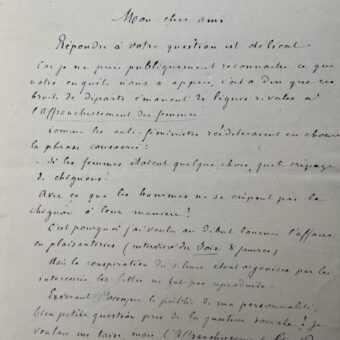 Mon cher ami
Répondre à votre question est délicat
Car je ne puis publiquement reconnaître ce que
notre enquête nous a appris, c'est à dire que ces
bruits de départs émanent de ligues rivales à
l'Affranchissement des femmes
Comme les anti-féministes rééditeraient en chœur
la phrase consacrée :
- Si les femmes étaient quelque chose, quel crêpage
de chignons !
Avec ça que les hommes ne se crêpent pas le
chignon à leur manière !
C'est pourquoi j'ai voulu au début tourner l'affaire
en plaisanteries (interview du Soir 8 janvier)
Mais la conspiration du silence étant organisée par les
intéressés la lettre ne fut pas reproduite
occuper le public de ma personnalité,
bien petite question près de la question sociale ! je
voulais me taire mais l'Affranchissement